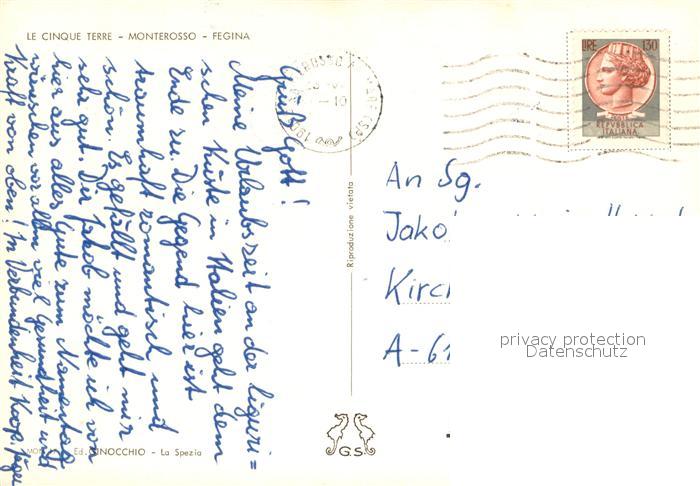 LE CINQUE TERRE - MONTEROSSO - FEGINA
Grüß Gott!
Meine Urlaubszeit an der liguri=
schen Küste in Italien geht dem
Ende zu. Die Gegend hier ist
traumhaft romantisch und
schön. Es gefällt und geht mir
sehr gut. Dir Jakob möchte ich von
hier aus alles Gute zum Namenstag
wünschen vor allem viel Gesundheit und
Kraft von oben! In Verbundenheit Koop.
Ed. GINOCCHIO - La Spezia
Riproduzione vietata
G.S.
LIRE 130
POSTE
REPVBBLICA
ITALIANA
An Sg.
Jako
Kirc
A-61
privacy protection
Datenschutz